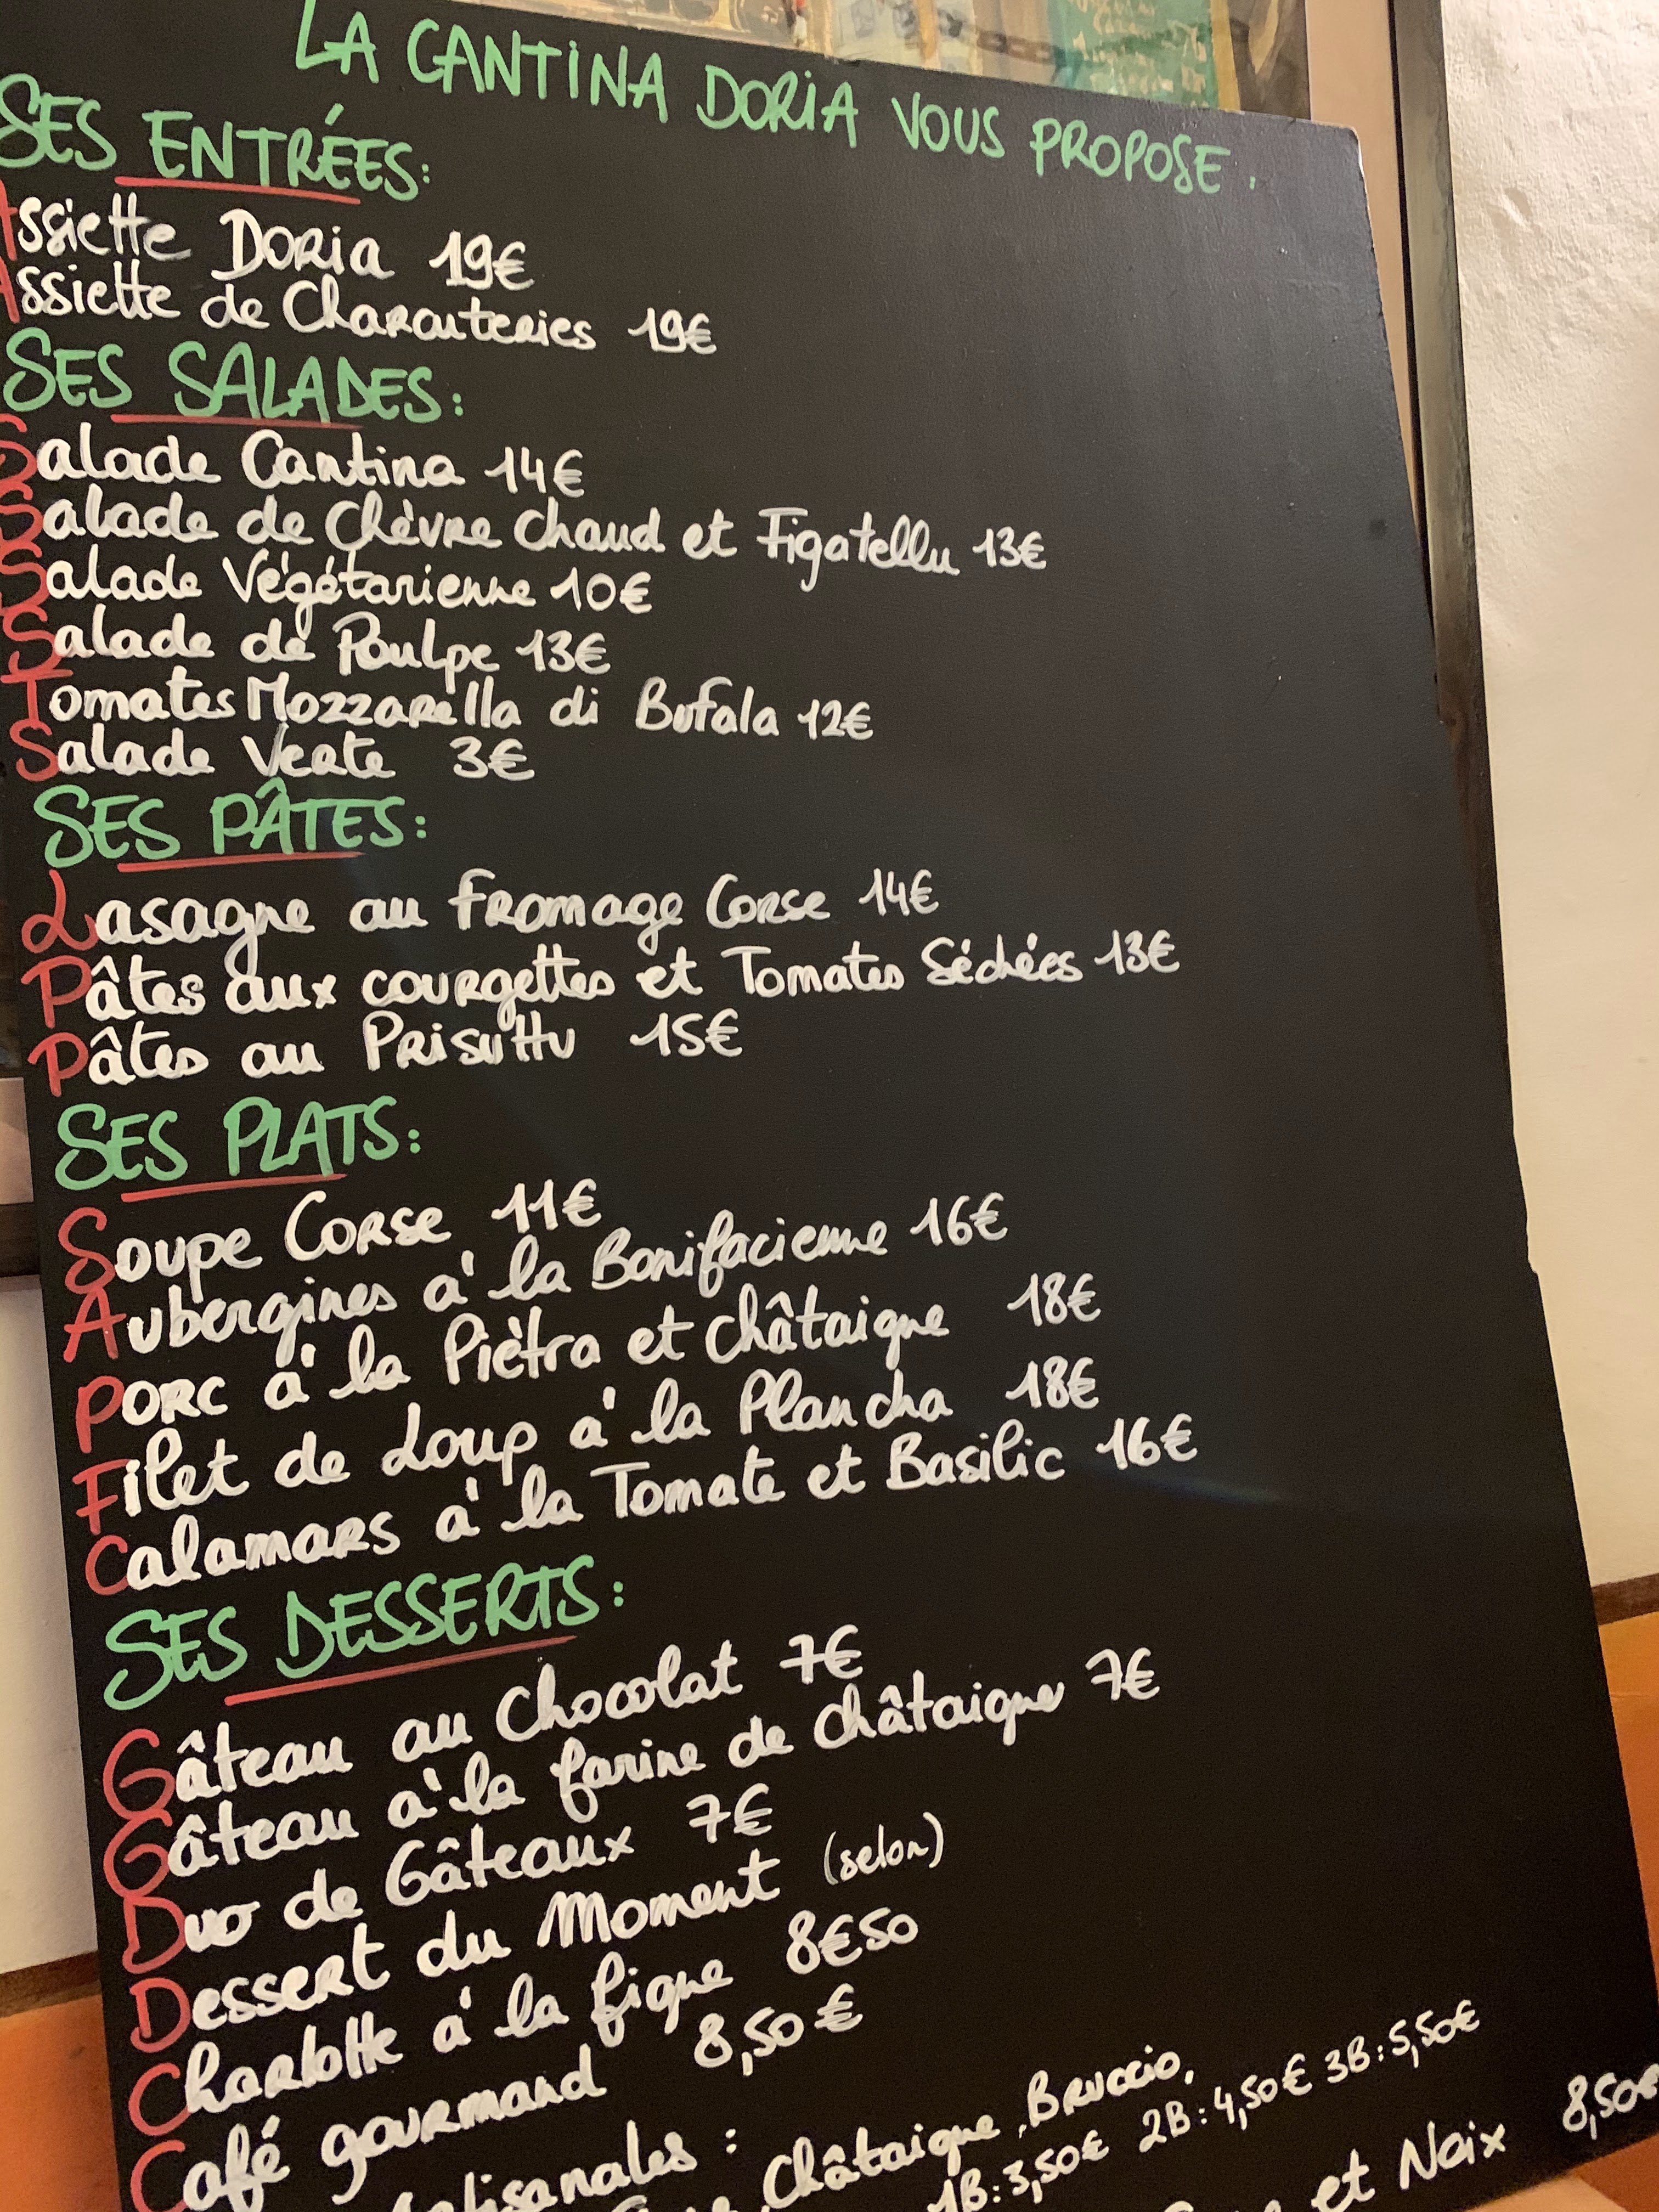 LA CANTINA DORIA VOUS PROPOSE.
SES ENTRÉES:
Assiette Doria 19€
Assiette de Charcuteries 19€
SES SALADES:
Salade Cantina 14€
Salade de Chèvre chaud et Figatellu 13€
Salade Végétarienne 10€
Salade de Poulpe 13€
Tomates Mozzarella di Bufala 12€
Salade Verte 3€
SES PÂTES:
Lasagne au Fromage Corse 14€
Pâtes aux courgettes et Tomates Séchées 13€
Pâtes au Prisuttu 15€
SES PLATS:
Soupe Corse 11€
Aubergines à la Bonifacienne 16€
Porc à la Piètra et châtaigne 18€
Filet de Loup à la Plancha 18€
Calamars à la Tomate et Basilic 16€
SES DESSERTS:
Gâteau au Chocolat 7€
Gâteau à la farine de châtaigne 7€
Duo de Gâteaux 7€
Dessert du Moment (selon)
Charlotte à la figue 8€50
Café gourmand 8,50€
:
Châtaigne, Bruccio,
1B:3,50€ 2B:4,50€ 3B:5,50€
et Noix 8,50€